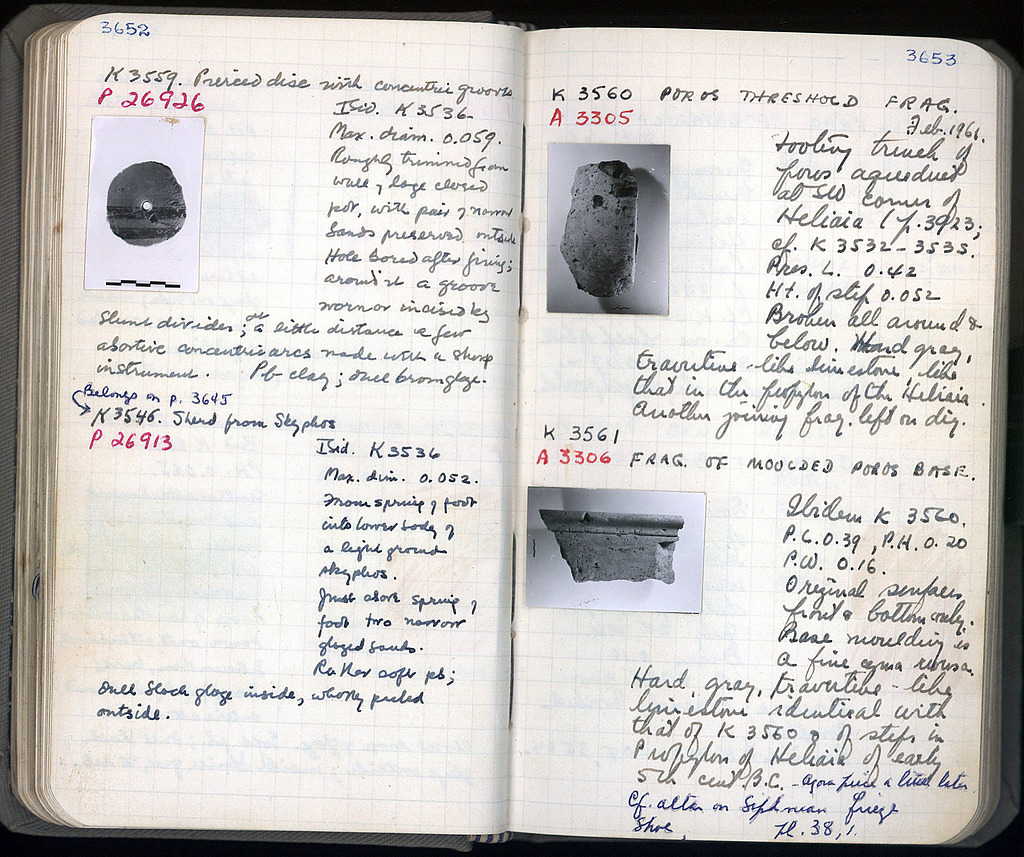 3652
K 3559. Pierced disc with concentric grooves
P 26926
Ibid. K 3536
Max. diam. 0.059.
Roughly trimmed from
wall of large closed
pot, with pair of narrow
bands preserved outside
Hole bored after firing;
around it a groove
worn or incised by
blunt dividers; at a little distance a few
abortive concentric arcs made with a sharp
instrument. Pb clay; dull brown glaze.
Belongs on p. 3645
K 3546. Sherd from Skyphos
P 26913
Ibid. K 3536
Max. dim. 0.052.
From spring of foot
into lower body of
a light ground
skyphos.
Just above spring of
foot two narrow
glazed bands.
Rather soft pb;
dull black glaze inside, wholly peeled
outside.
3653
K 3560 POROS THRESHOLD FRAG.
A 3305
Feb. 1961.
Footing trench of
poros aqueduct
at SW corner of
Heliaia (p. 3923;
cf. K 3532-3535.
Pres. L. 0.42
Ht. of step 0.052
Broken all around &
below. Hard gray,
travertine-like limestone like
that in the propylon of the Heliaia.
Another joining frag. left on dig.
K 3561
A 3306 FRAG. OF MOULDED POROS BASE.
Ibidem K 3560.
P.L. 0.39, P.H. 0.20
P.W. 0.16.
Original surfaces
front & bottom only.
Base moulding is
a fine cyma reversa
Hard, gray, travertine-like
limestone identical with
that of K 3560 & of steps in
Propylon of Heliaia of early
5th cent. B.C. - Agora piece a little later
Cf. altar on Siphnian frieze
Shoe, Pl. 38, 1.